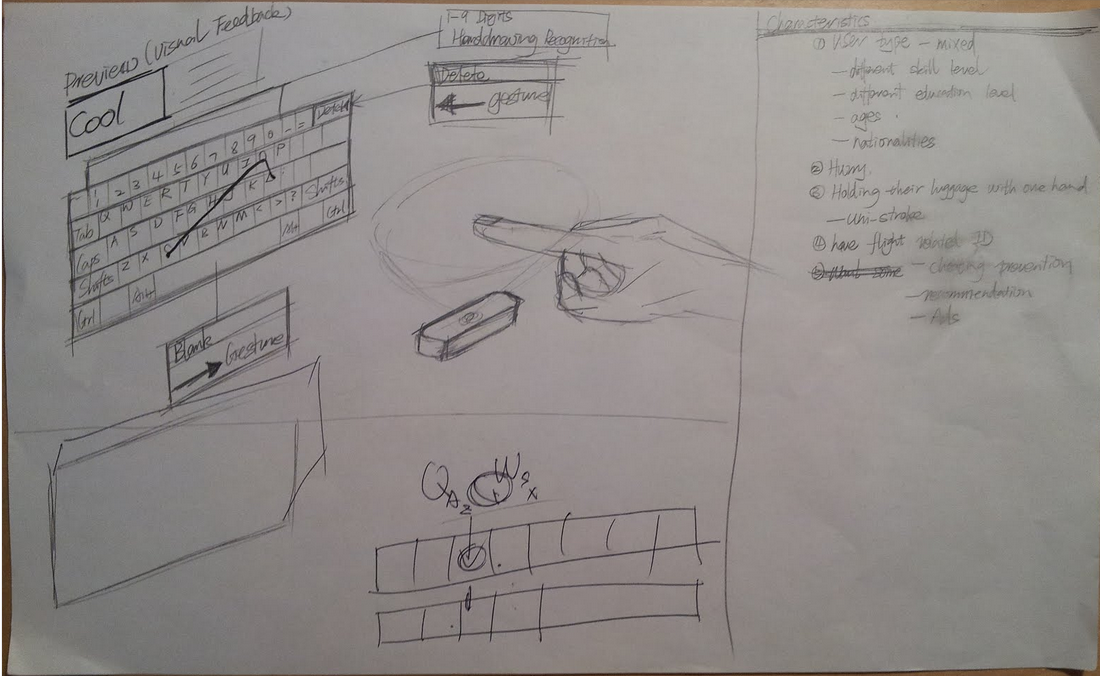 Preview (Visual Feedback)
Cool
1-9 Digits
Handdrawing Recognition
Delete
← gesture
~ 1 2 3 4 5 6 7 8 9 0 - =
Tab Q W E R T Y U I O P
Caps A S D F G H J K L
Shifts Z X C V B N M < > ? Shifts
Ctrl Alt Alt Ctrl
Blank
→ Gesture
Q A Z W S X
Characteristics
① User type - mixed
- different skill level
- different education level
- ages
- nationalities
② Hurry.
③ Holding their luggage with one hand
- Uni-stroke
④ have flight related ID
- cheating prevention
- recommendation
- Ads